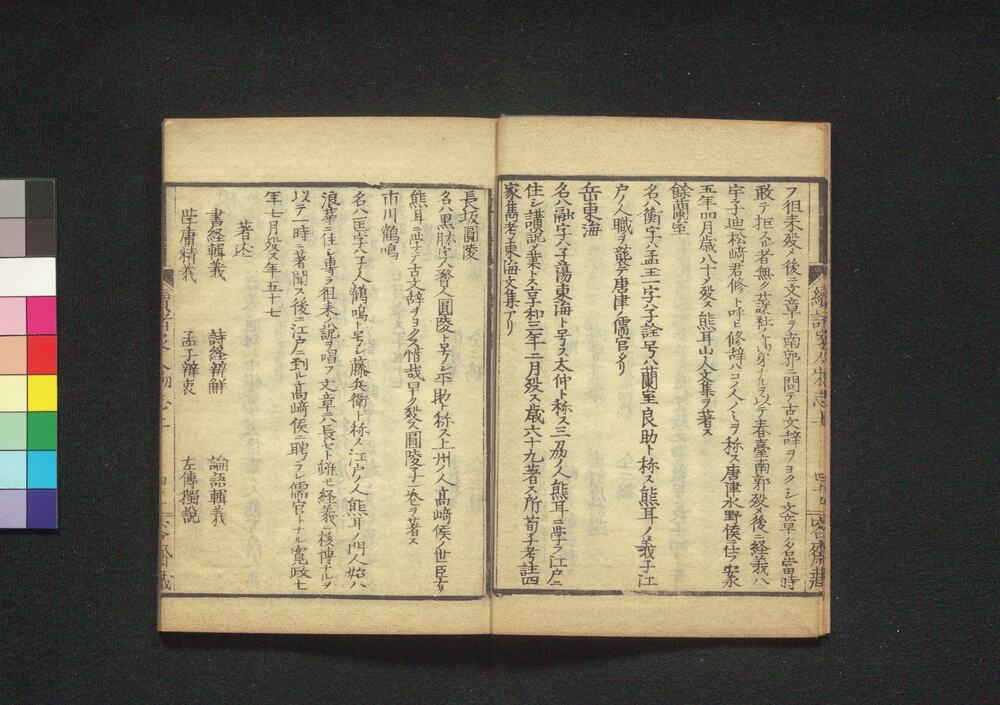 フ徂来殁メ後ニ文章ヲ南郭ニ問テ古文辞ヲヨクシ文章ノ名當時
敢テ拒スル者無ク蘐社ノ高弟ナルヲ以テ春臺南郭殁メ後ニ経義ハ
宇子迪松﨑君修ト呼ヒ修辞ハコノ人ノミヲ称ス唐津水野侯ニ仕フ安永
五年四月歳八十ニノ殁ス熊耳山人文集ヲ著ス
餘蘭室
名ハ衡字ハ孟玉一字ハ子詮号ハ蘭室良助ト称ス熊耳ノ義子江
戸ノ人職ヲ襲テ唐津ノ儒官タリ
岳東海
名ハ融字ハ子陽東海ト号ス太仲ト称ス三刕ノ人熊耳ニ学フ江戸ニ
住シ講説ヲ業トス享和三年二月殁ス歳六十九著ス所荀子考註四
家雋考東海文集アリ
長坂圓陵
名ハ黒肱字ハ贅人圓陵ト号シ不助ト称ス上州ノ人高﨑侯ノ世臣ナリ
熊耳ニ学テ古文辞ヲヨクス惜哉早ク殁ス圓陵子一巻ヲ著ス
市川鶴鳴
名ハ匡字ハ子人鶴鳴ト号シ藤兵衛ト称ス江戸ノ人熊耳ノ門人始ハ
浪華ニ住シ専ラ徂来ノ説ヲ唱フ文章ニハ長セト雖モ経義ニ核博ナルヲ
以テ一時ニ著聞ス後ニ江戸ニ到ル高﨑侯ニ聘ヲレ儒官トナル寛政七
年七月殁ス年五十七
著述
書経輯義 詩経辨解 論語輯義
学庸精義 孟子辨衷 左傳獨説